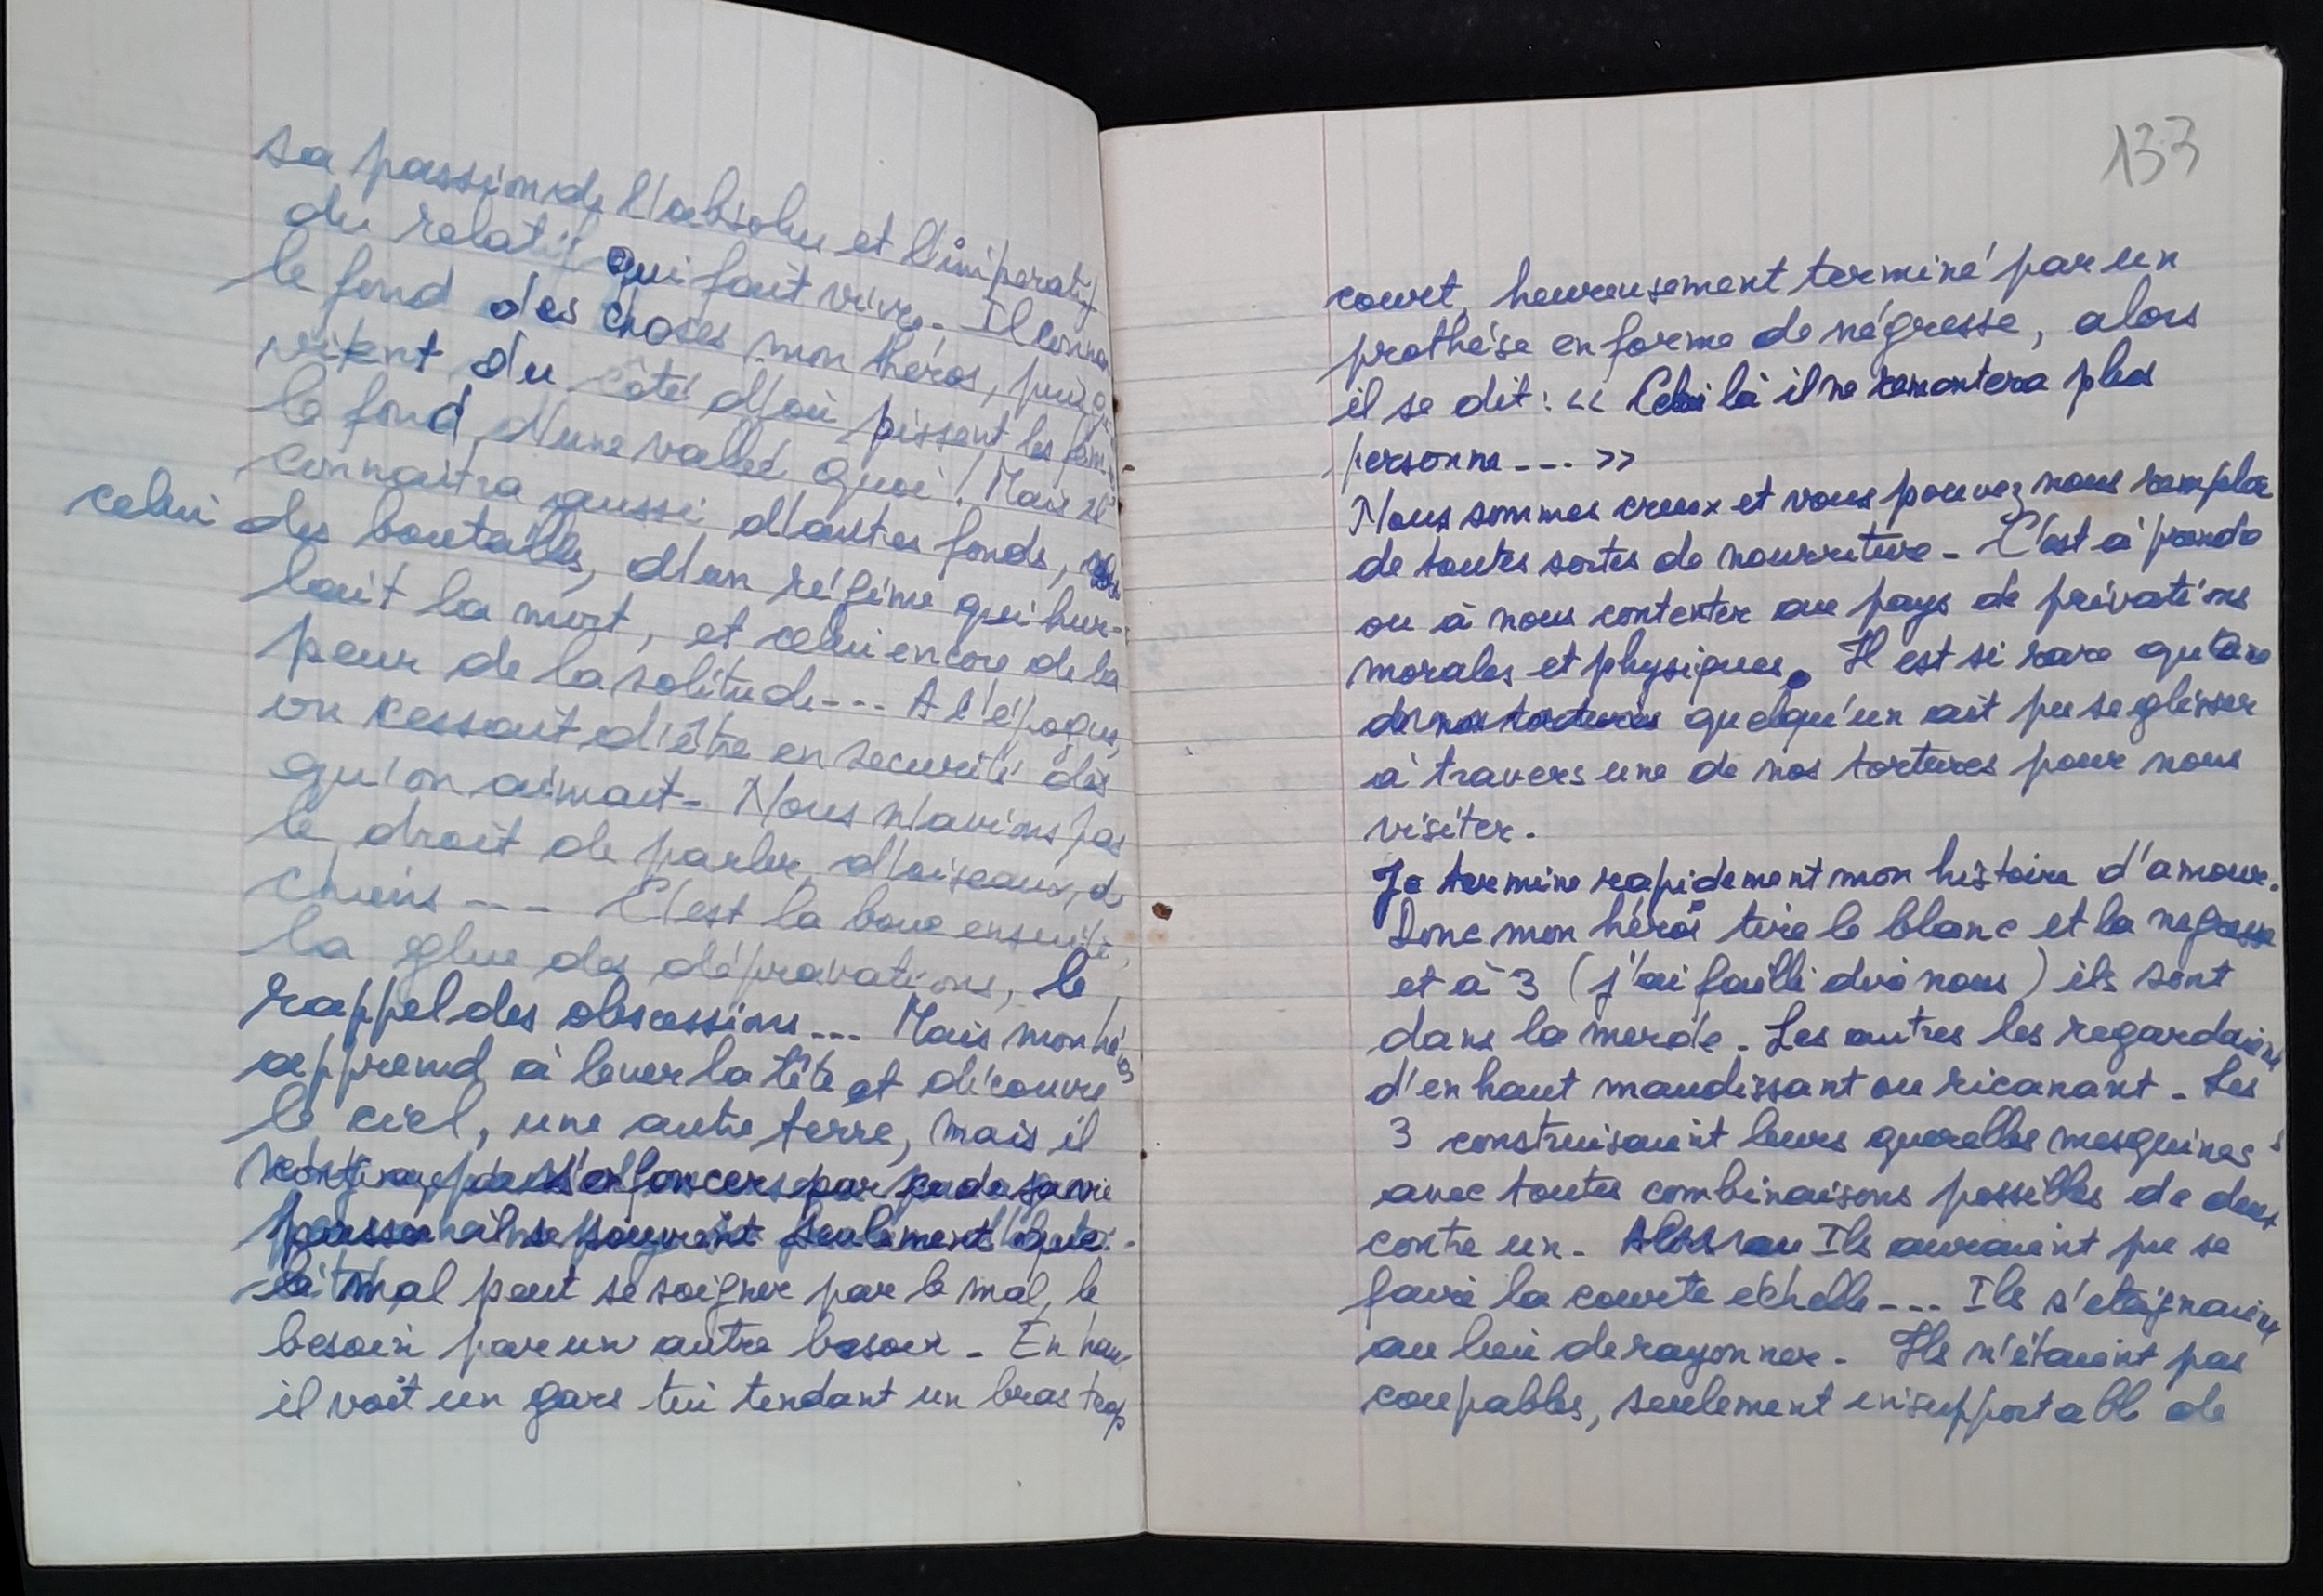 sa passion de l'absolu et l'impératif
du relatif qui fait vivre. Il connai
le fond des choses mon héros, puisq
vient du côté d'où pissent les fem
le fond d'une vallée quoi ! Mais il
connaitra aussi d'autres fonds,
celui des boutailles, d'un régime qui hur-
lait la mort, et celui encore de la
peur de la solitude --- A l'époque,
on cessait d'être en securité dès
qu'on aimait. Nous n'avions pas
le droit de parler d'oiseaux, de
chiens --- C'est la boue ensuite,
la glue des dépravations, le
rappel des obsessions... Mais mon héros
apprend à lever la tête et découvre
le ciel, une autre terre, mais il
seulement que
le mal peut se soigner par le mal, le
besoin par un autre besoin. En hau
il voit un gars lui tendant un bras trop
133
court, heureusement terminé par un
prothèse en forme de négresse, alors
il se dit : << Celui là il ne remontera plus
personne --- >>
Nous sommes creux et vous pouvez nous remplir
de toutes sortes de nourriture. C'est à prendre
ou à nous contenter au pays de privations
morales et physiques. Il est si rare
de nos tortures quelqu'un ait pu se glisser
à travers une de nos tortures pour nous
visiter.
Je termine rapidement mon histoire d'amour.
Donc mon héros tire le blanc et la negresse
et à 3 (j'ai failli dire nous) ils sont
dans la merde. Les autres les regardaient
d'en haut maudissant ou ricanant. Les
3 construisaient leurs querelles mesquines
avec toutes combinaisons possibles de deux
contre un. Ils auraient pu se
faire la courte échelle --- Ils s'etaignaient
au lieu de rayonner. Ils n'étaient pas
coupables, seulement insupportable de